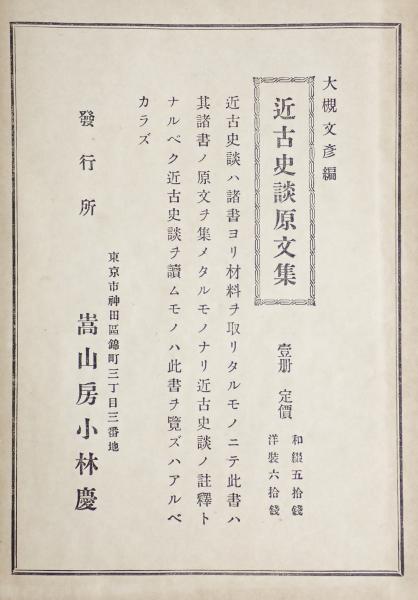 大槻文彦編
近古史談原文集
壹册 定價
和綴五拾錢
洋裝六拾錢
近古史談ハ諸書ヨリ材料ヲ取リタルモノニテ此書ハ
其諸書ノ原文ヲ集メタルモノナリ近古史談ノ註釋ト
ナルベク近古史談ヲ讀ムモノハ此書ヲ覽ズハアルベ
カラズ
發行所
東京市神田區錦町三丁目三番地
嵩山房小林慶